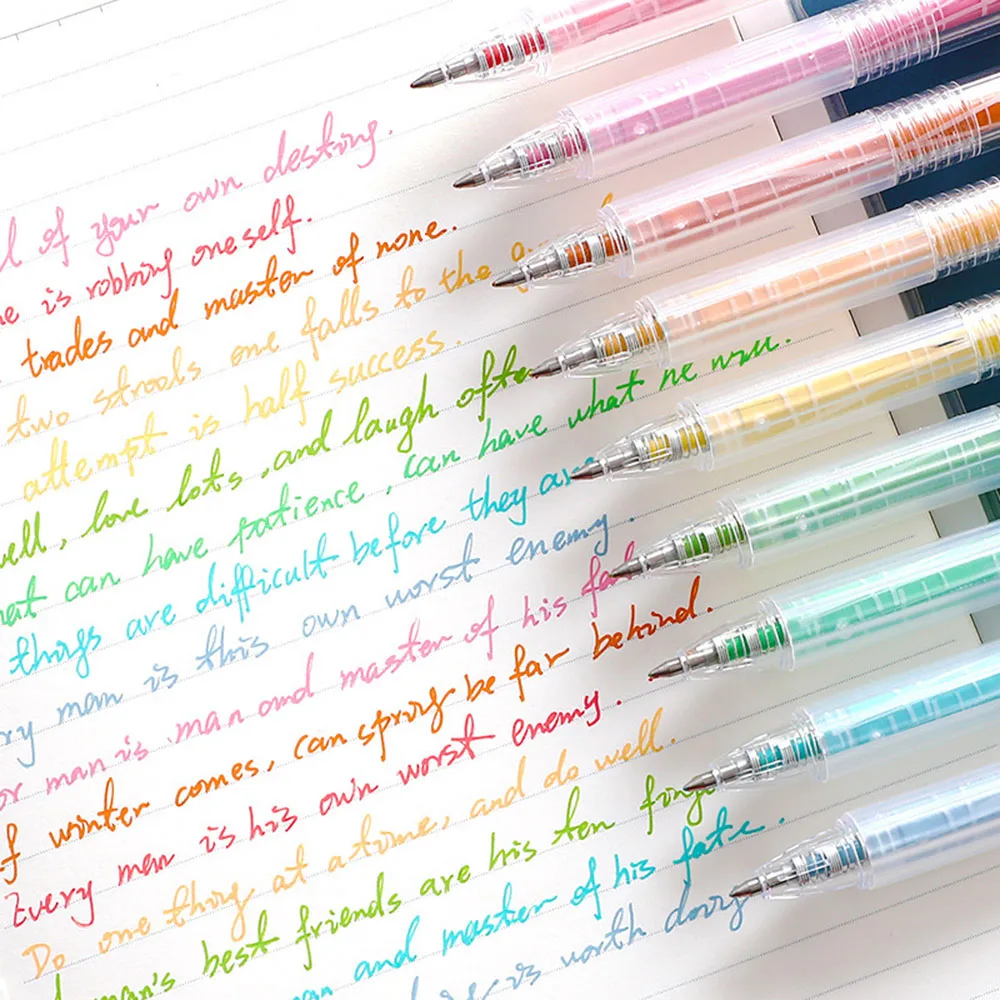 of your own destiny.
is robbing oneself.
trades and master of none.
two strools one falls to the
attempt is half success.
well, love lots, and laugh ofte
hat can have patience, can have what he will.
things are difficult before they are
ry man is this own worst enemy.
or man is man and master of his fa
f winter comes, can spring be far behind.
Every man is his own worst enemy.
Do one thing at a time, and do well.
man's best friends are his ten finge
man and master of his fate.
is worth doing